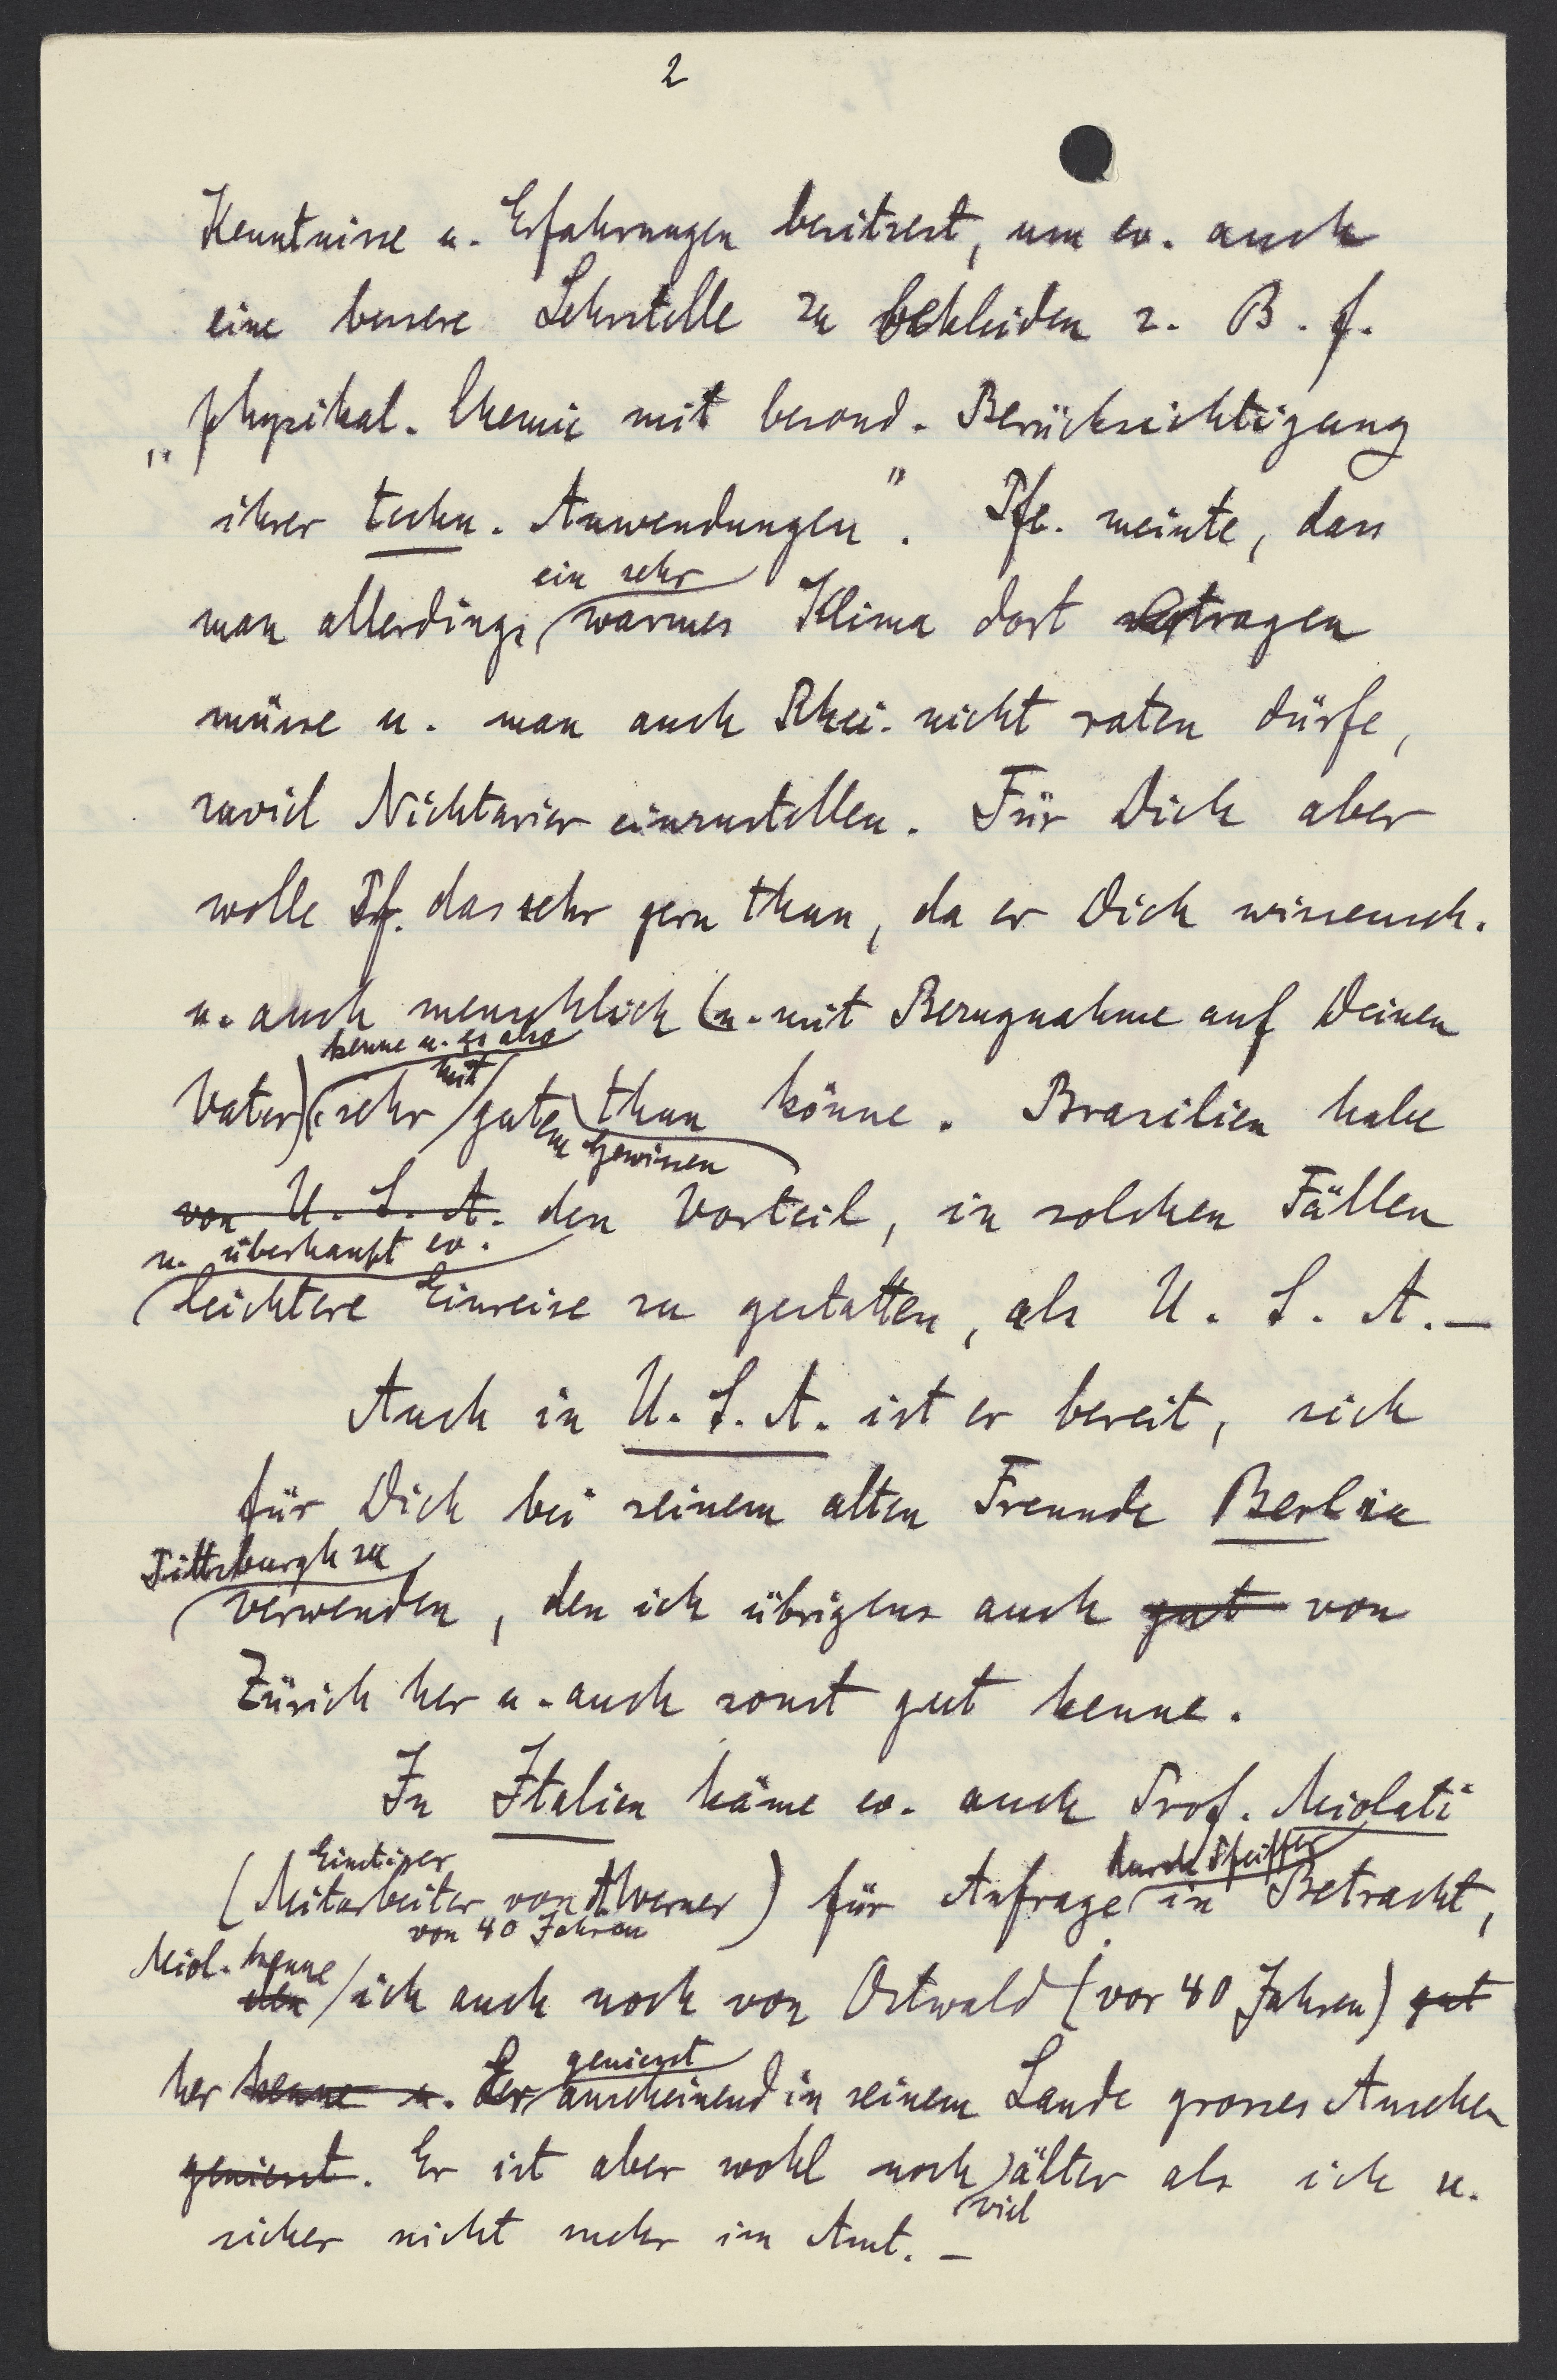 2
Kenntnisse u. Erfahrungen besitzest, um ev. auch
eine bessere Lehrstelle zu bekleiden z. B. f.
„physikal. Chemie mit besond. Berücksichtigung
ihrer techn. Anwendungen". Pfe. meinte, dass
ein sehr
man allerdings warmes Klima dort vertragen
müsse u. man auch Rhei. nicht raten dürfe,
zuviel Nichtarier einzustellen. Für Dich aber
wolle Pf. das sehr gern thun, da er Dich wissensch.
u. auch menschlich (u. mit Bezugnahme auf Deinen
kenne u. es also
mit
Vater) sehr gutem thun könne. Brasilien habe
Gewissen
von U. S. A. den Vorteil, in solchen Fällen
u. überhaupt ev.
leichtere Einreise zu gestatten, als U. S. A. —
Auch in U. S. A. ist er bereit, sich
für Dich bei seinem alten Freunde Berl in
Pittsburgh zu
verwenden, den ich übrigens auch gut von
Zürich her u. auch sonst gut kenne.
In Italien käme ev. auch Prof. Miolati
Einstiger durch Pfeiffer
(Mitarbeiter von A Werner) für Anfrage in Betracht,
von 40 Jahren
Miol. kenne
den ich auch noch von Ostwald (vor 40 Jahren) gut
geniesst
her kenne u. Der anscheinend in seinem Lande grosses Ansehen
geniesst. Er ist aber wohl noch älter als ich u.
viel
sicher nicht mehr im Amt. —